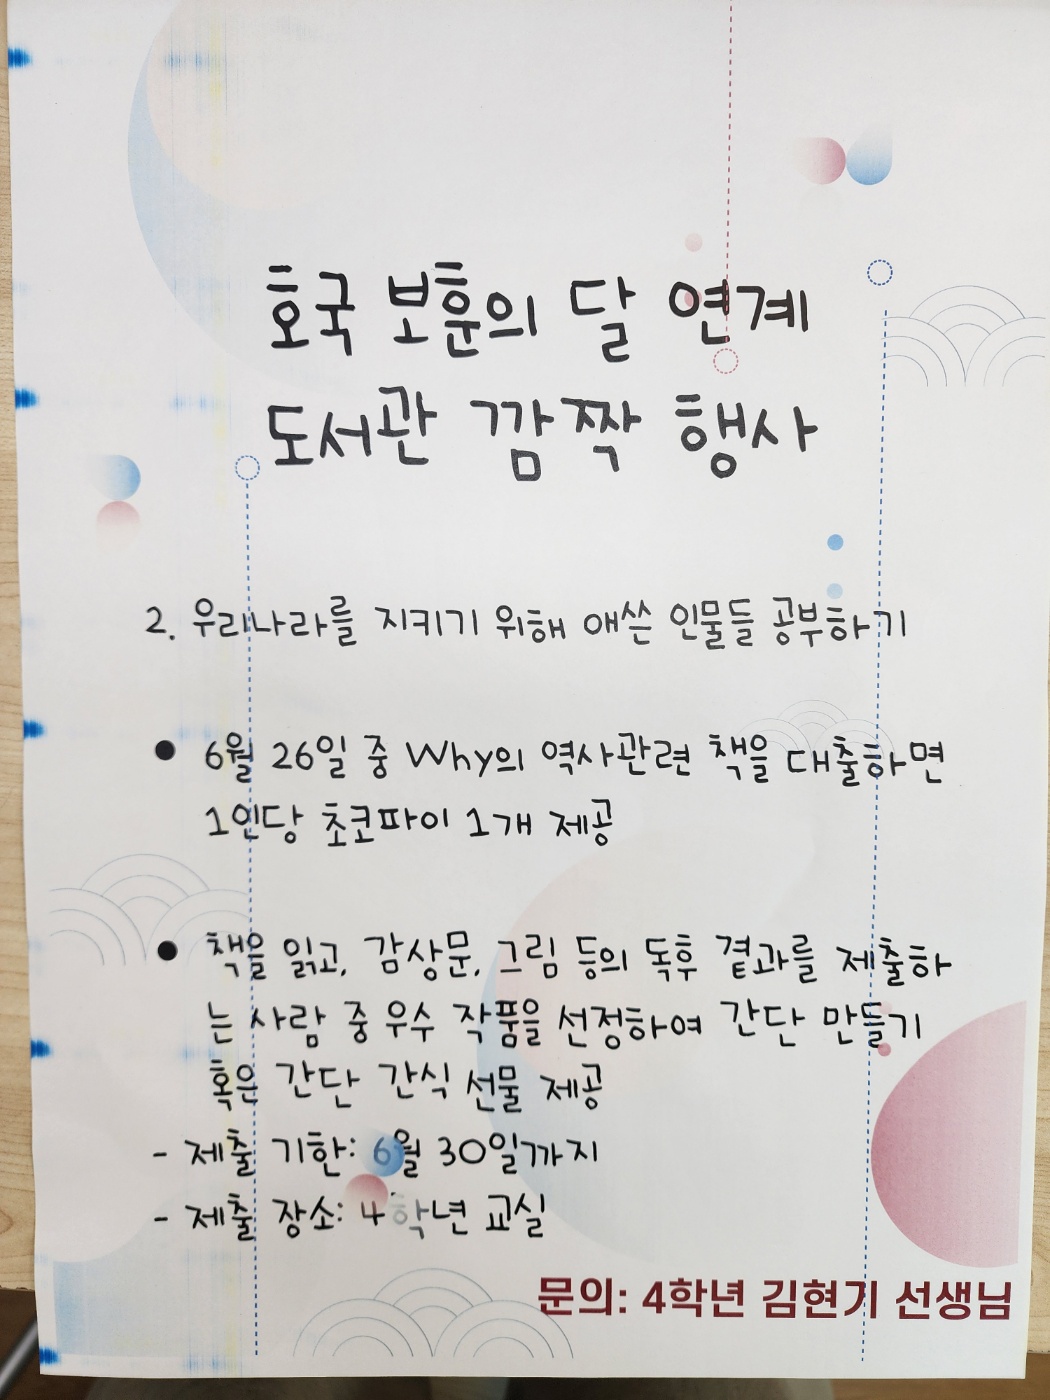 호국 보훈의 달 연계
도서관 깜짝 행사
2. 우리나라를 지키기 위해 애쓴 인물들 공부하기
● 6월 26일 중 Why의 역사관련 책을 대출하면
1인당 초코파이 1개 제공
● 책을 읽고, 감상문, 그림 등의 독후 결과를 제출하
는 사람 중 우수 작품을 선정하여 간단 만들기
혹은 간단 간식 선물 제공
- 제출 기한: 6월 30일까지
- 제출 장소: 4학년 교실
문의: 4학년 김현기 선생님